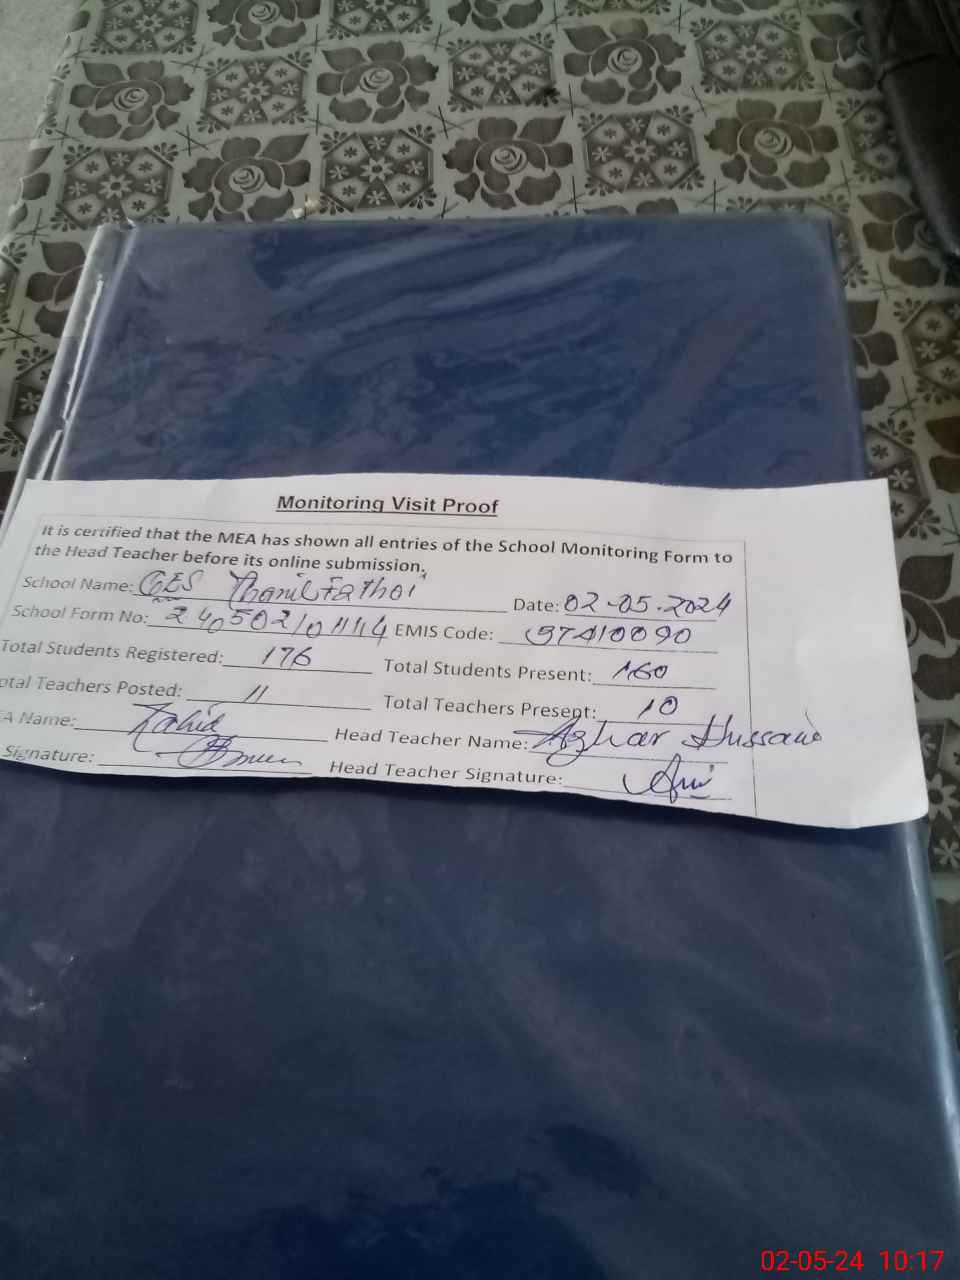 Monitoring Visit Proof
It is certified that the MEA has shown all entries of the School Monitoring Form to
the Head Teacher before its online submission.
School Name: GES Date: 02-05-2024
School Form No: 240502101114 EMIS Code: 37410090
Total Students Registered: 176 Total Students Present: 160
otal Teachers Posted: 11 Total Teachers Present: 10
A Name: Zahid Head Teacher Name: Azhar Hussain
Signature: Head Teacher Signature:
02-05-24 10:17